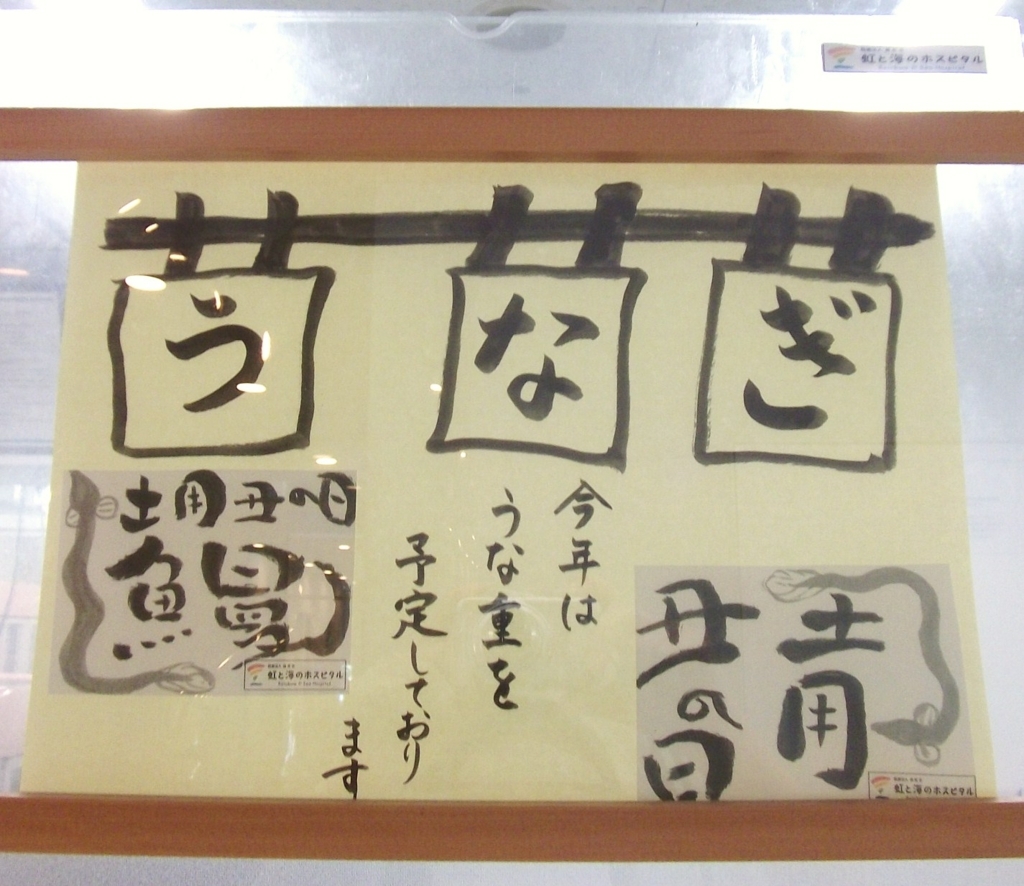 虹と海のホスピタル
うなぎ
今年は
うな重を
予定しており
ます
土用丑の日
鰻
虹と海のホスピタル
土用
丑の日
虹と海のホスピタル